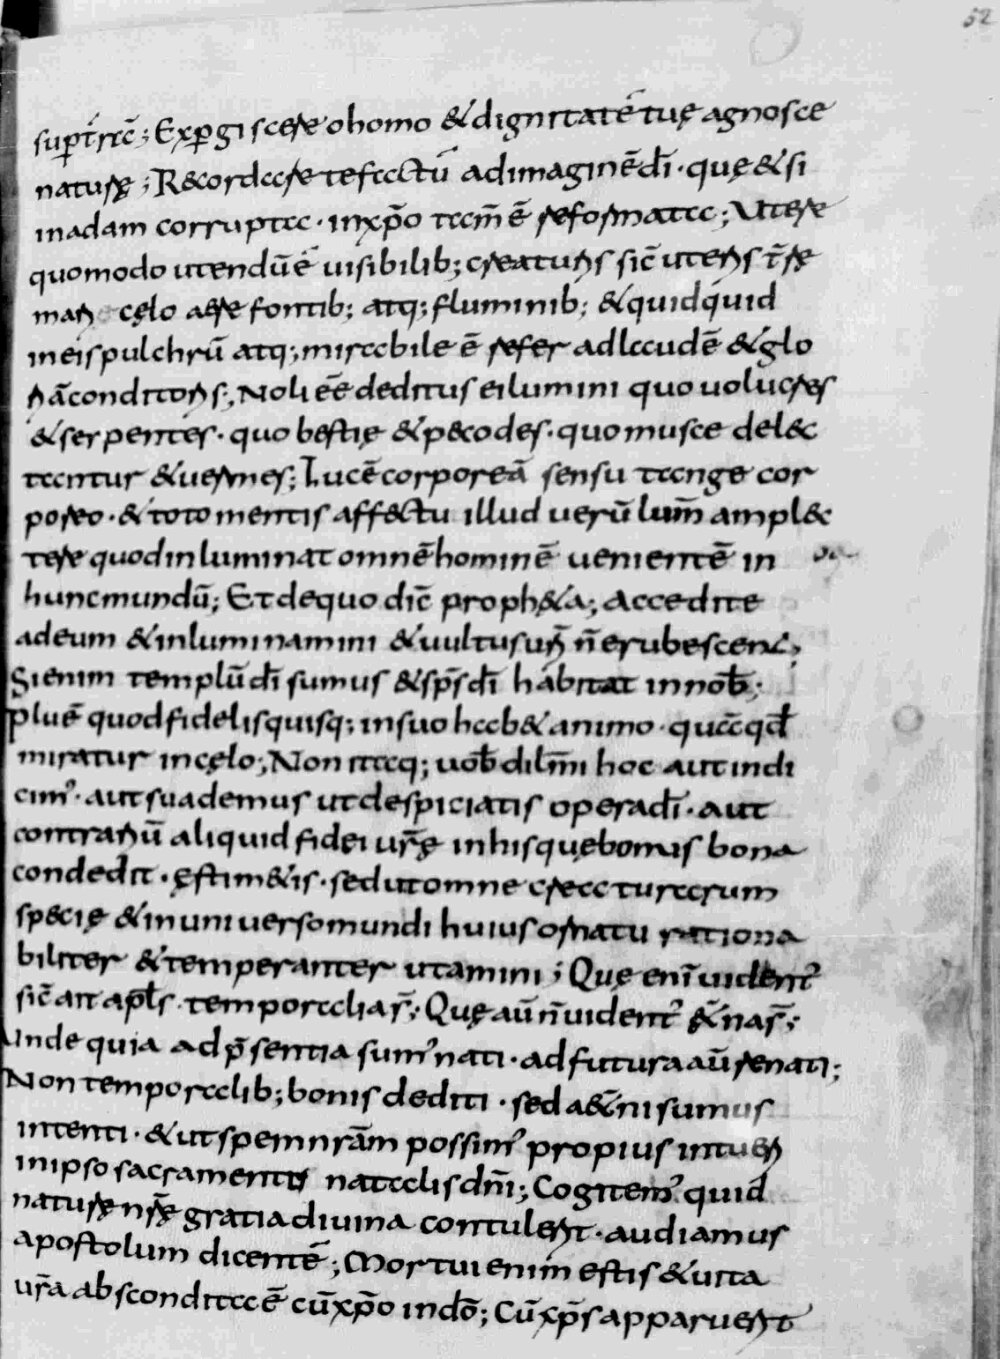 52
sup̱t̄ricc̄; Exp̱gi scere o homo & dignitatē tuę agnosce
naturę; R&ordare te factū ad imaginē dī · quę & si
in adam corrupta · in xp̄o tam̄ ē reformata; Utere
quomodo utendū ē uisibilib; creaturis sic̄ uteris t̄rę
mari cęlo aere fontib; atq; fluminib; & quidquid
in eis pulchrū atq; mirabile ē refer ad laudē & glo
riā conditoris; Noli eē deditus ei lumini quo uolucres
& serpentes · quo bestię & p&odes · quo musce del&
tantur & uermes; Lucē corporeā sensu tange cor
poreo · & toto mentis aff&tu illud uerū lum̄ ampl&
tere quod inluminat omnē hominē uenientē in
hunc mundū; Et de quo dic̄ proph&a; Accedite
ad eum & inluminamini & uultus ur̄i n̄ erubescent;
Si enim templū dī sumus & sp̄s dī habitat in nob̄;
plus ē quod fidelis quisq; in suo hab& animo · quā qd̄
miratur in cęlo; Non itaq; uob̄ dil̄mi hoc aut indi
cim' · aut suademus ut despiciatis opera dī · aut
contrariū aliquid fidei ur̄ę in his quę bonus bona
condedit · ęstim&is · sed ut omne creaturarum
sp&ię & in uniuerso mundi huius ornatu rationa
biliter & temperanter utamini; Quę eni uident'
sic̄ ait apl̄s · temporalia s̄; Quę aū n̄ uident' ę̄na s̄;
Unde quia ad p̄sentia sum' nati · ad futura aū renati;
Non temporalib; bonis dediti · sed a&̄nis sumus
intenti · & ut spem nr̄am possim' propius intueri
in ipso sacramento natalis dn̄i; Cogitem' quid
naturę nr̄ę gratia diuina contulerit · audiamus
apostolum dicentē; Mortui enim estis & uita
ur̄a abscondita ē cū xp̄o in dō; Cū xp̄s apparuerit